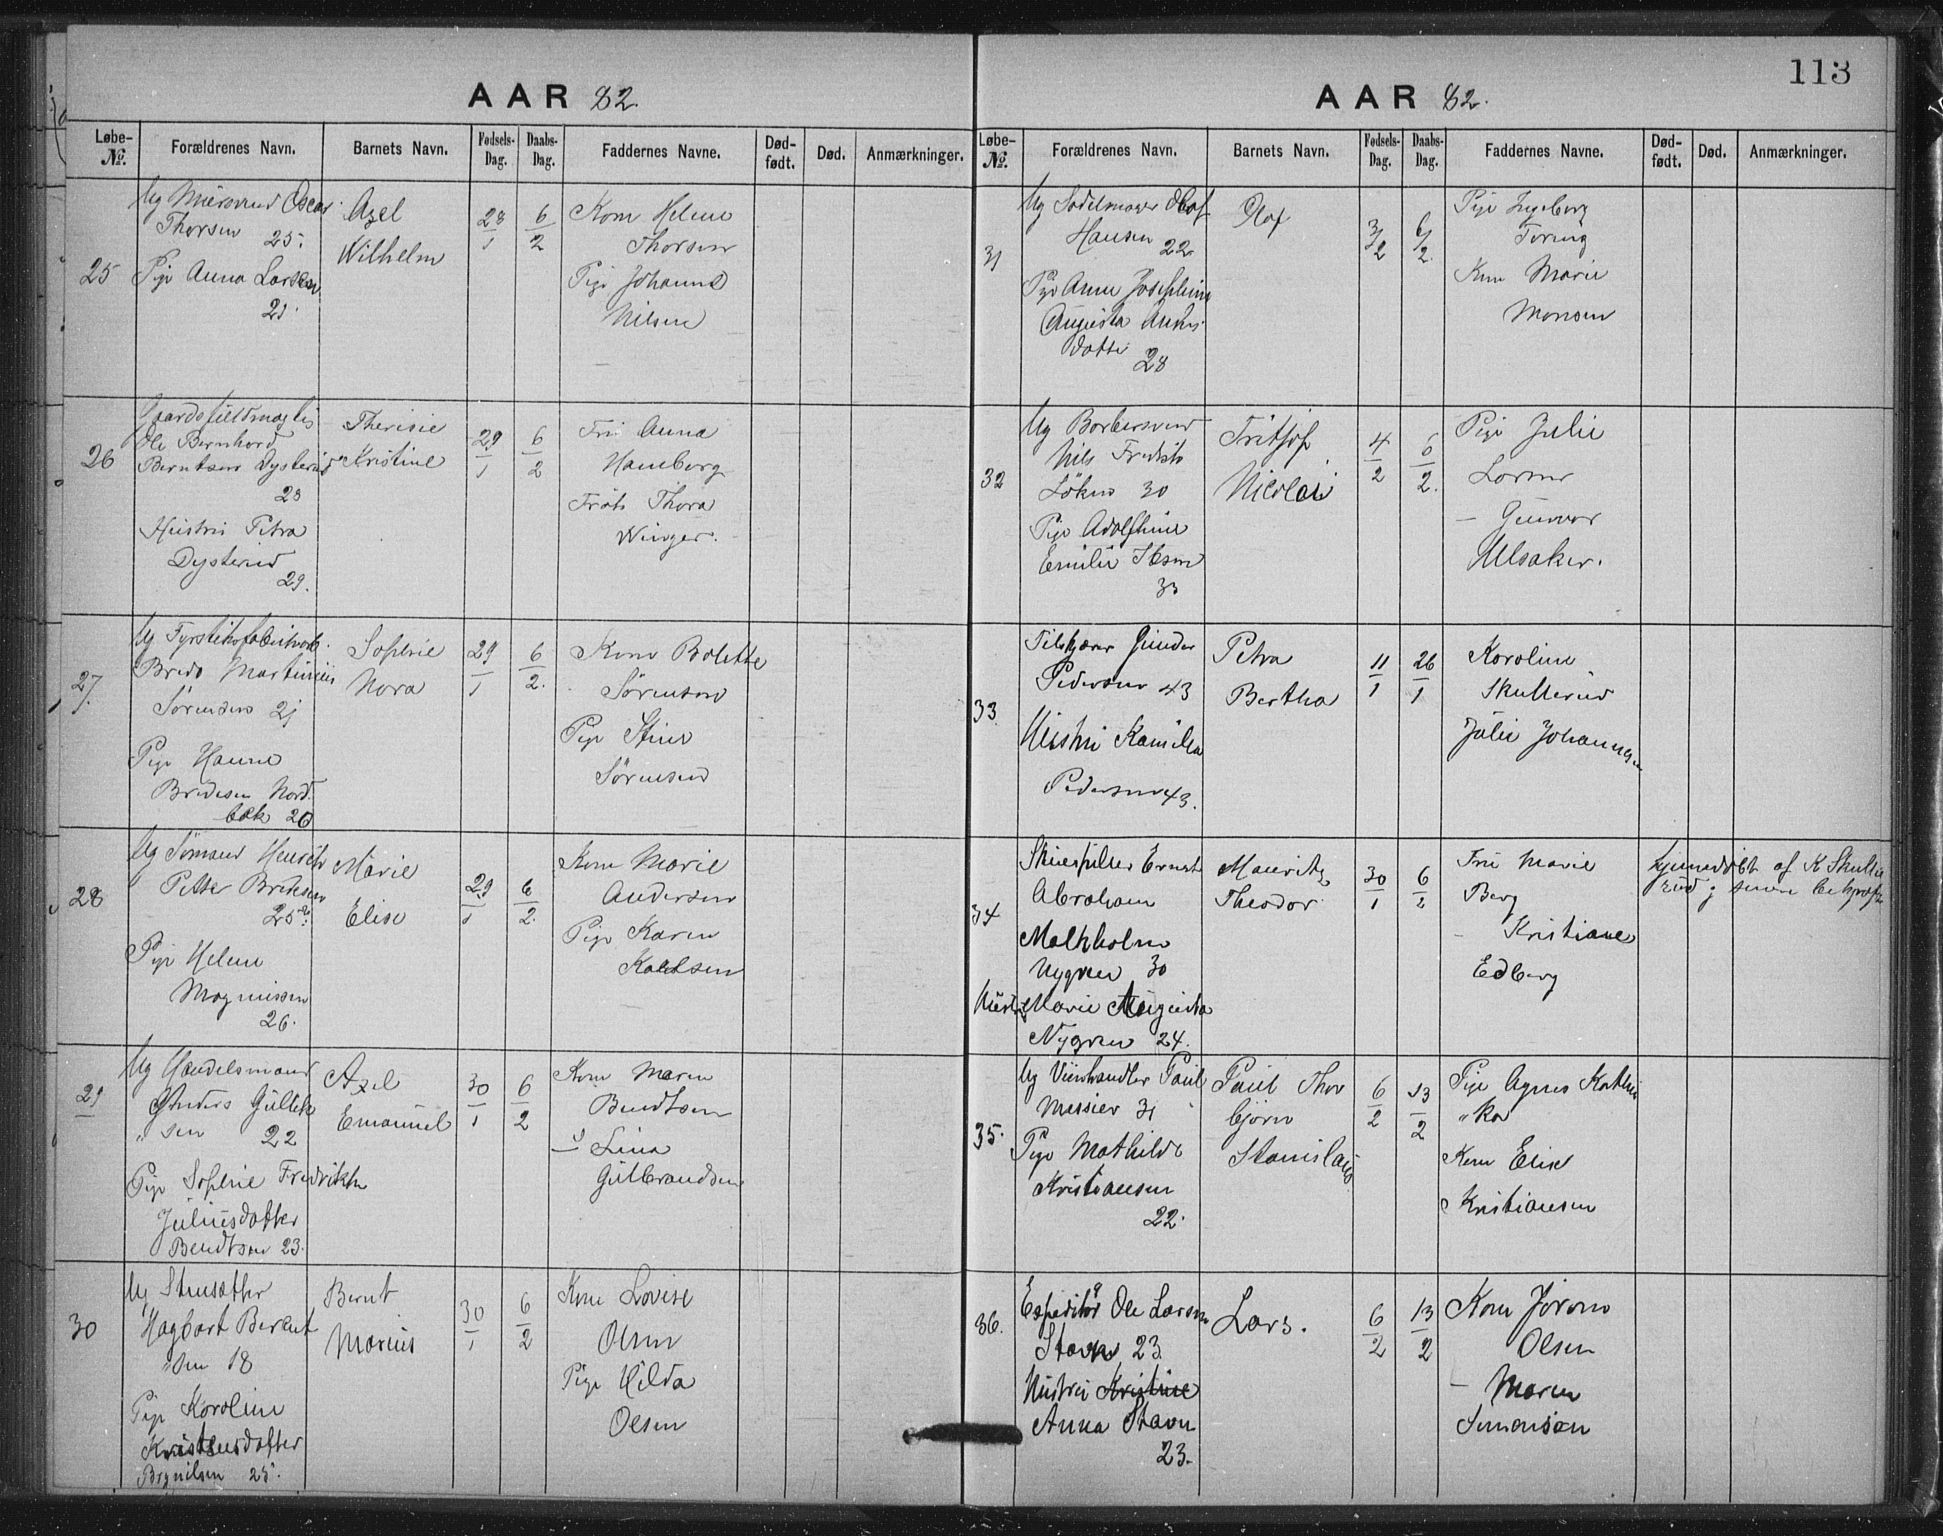 AAR 82.
Løbe-No. Forældrenes Navn. Barnets Navn. Fødsels-Dag. Daabs-Dag. Faddernes Navne. Død-født. Død. Anmærkninger.
25
Ug Mursvend Oscar
Thorsen 25.
Pige Anna Larsen
21.
Axel
Wilhelm
28/1
6/2
Kone Helene
Thorsen
Pige Johanne
Nilsen
26
Ole Bernhard
Berntsen Dysterud
28
Hustru Petra
Dysterud
29.
Therisie
Kristine
29/1
6/2
Fru Anna
Hamborg
Frøk Thora
Winger.
27.
Ug Fyrstikfabrikarb.
Bredo Martinius
Sørensen 21
Pige Hanne
Bredesen Nord.
bæk 20
Sophie
Nora
29/1
6/2.
Kone Bolette
Sørensen
Pige Stine
Sørensen
28
Ug Sømand Henrik
Petter Bredesen
25
Pige Helene
Magnussen
26.
Marie
Elise
29/1
6/2.
Kone Marie
Andersen
Pige Karen
Karlsen
29
Ug Handelsmand
Anders Gullik
" sen 22
Pige Sophie Fredrikke
Juliusdatter
Bendtsen 23.
Axel
Emanuel
30/1
6/2
Kone Maren
Bendtsen
— Lina
Gulbrandsen
30
Ug Stensætter
Hagbart Berent
"sen 18
Pige Karoline
Kristensdatter
Brynilsen 25.
Bernt
Marius
30/1
6/2
Kone Lovise
Olsen
Pige Hilda
Olsen
113
AAR 82.
Løbe-No. Forældrenes Navn. Barnets Navn. Fødsels-Dag. Daabs-Dag. Faddernes Navne. Død-født. Død. Anmærkninger.
31
Ug Sadelmager Olaf
Hansen 22
Pige Anne Josephine
Augusta Anders
datter
28
Olaf
3/2
6/2.
Pige Ingeborg
Kone Marie
Monsen
32
Ug Barbersvend
Nils Fredrik
Løken 30
Pige Adolfhine
Emilie
33
Fritjof
Nicolai
4/2
6/2.
Pige Julie
Larsen
— Gunvor
Ulsaker.
33
Gunder
Pedersen 43
Hustru Kamilla
Pedersen 43.
Petra
Bertha
11/1
26/1
Karoline
Skullerud
Julie Johannesen
34
Skuespiller Ernst
Abraham
Malkholm
Nygren 30
Hustru Marie Augusta
Nygren 24.
Mauritz
Theodor.
30/1
6/2
Fru Marie
Berg
- Kristiane
Edberg
hjemmedøbt af K Skulle
rud
35.
Ug Vinhandler Paul
Messier 31
Pige Mathilde
Kristiansen
22.
Paul Thor
bjørn
Stanislaus
6/2
13/2
Pige Agnes Kathin
"ka
Kone Elise
Kristiansen
36.
Expeditør Ole Larsen
Stavn 23
Hustru Kristine
Anna Stavn
23.
Lars.
6/2
13/2
Kone Joron
Olsen
— Maren
Simonsen